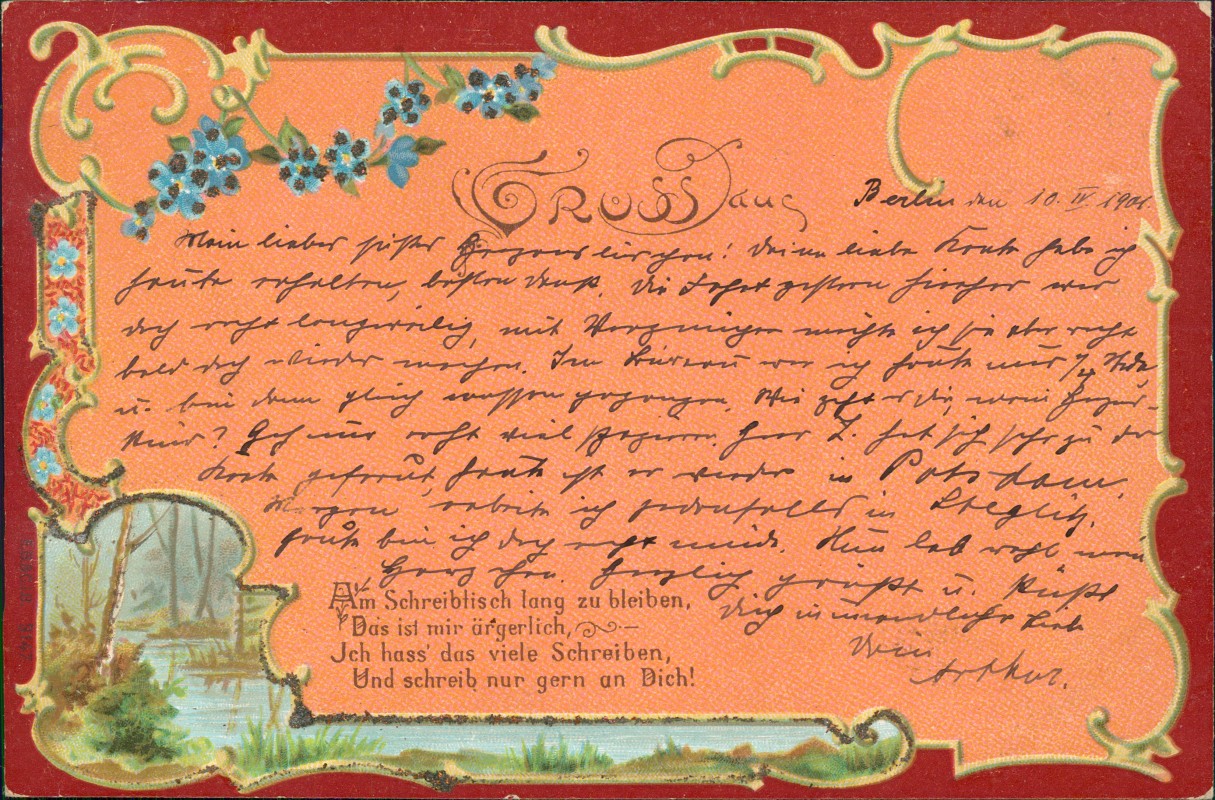 Gruss aus Berlin den 10. IV. 1901.
Mein lieber süßer ! Deine liebe Karte habe ich
heute erhalten, besten Dank. Die Fahrt gestern hierher war
doch recht langweilig, mit Vergnügen möchte ich sie aber recht
bald doch wieder machen. Im Büreau war ich heute nur
u. bin dann gleich essen gegangen. Wie geht es Dir, mein
? Geh nur recht viel spazieren. Herr Z. hat sich sehr zu der
Karte gefreut, heute ist er wieder in Potsdam.
Morgen arbeite ich jedenfalls in Steglitz.
Heute bin ich doch recht müde. Nun leb wohl mein
Herzchen. Herzlich grüßt u. küßt
Dich in unendlicher Liebe
Dein
Arthur.
Am Schreibtisch lang zu bleiben,
Das ist mir ärgerlich,
Ich hass' das viele Schreiben,
Und schreib nur gern an Dich!